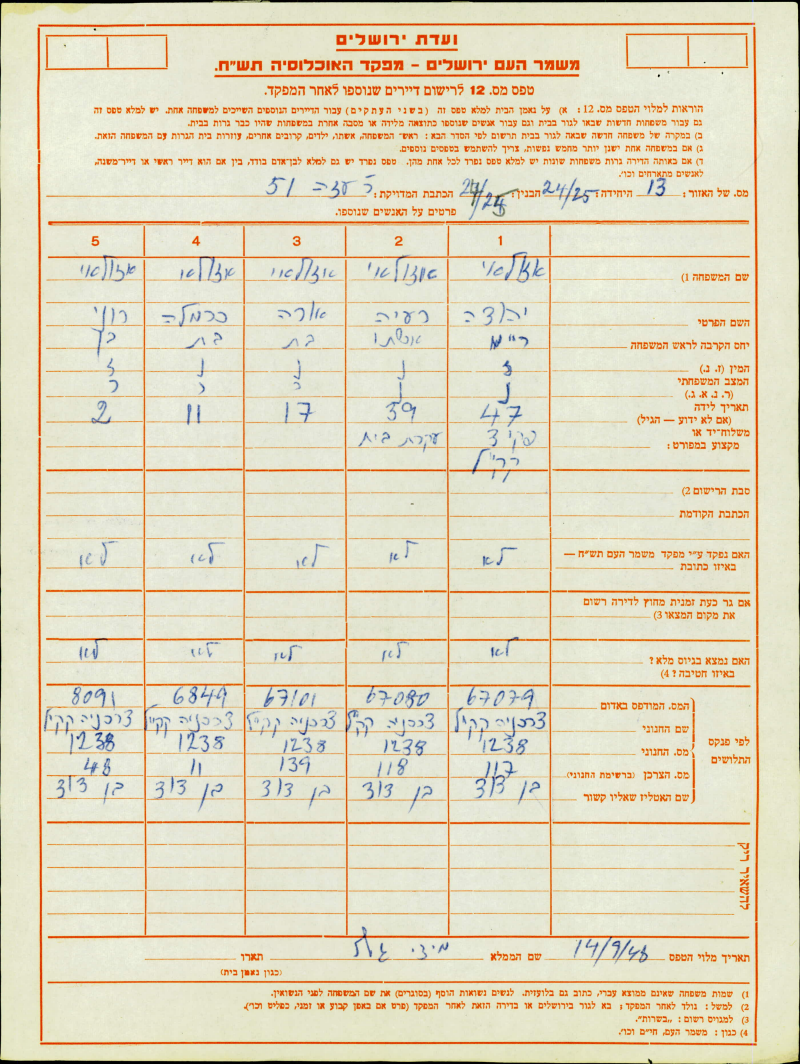 ועדת ירושלים
משמר העם ירושלים – מפקד האוכלוסיה תש״ח.
טפס מס. 12 לרישום דיירים שנוספו לאחר המפקד.
הוראות למלוי הטפס מס. 12 : א) על נאמן הבית למלא טפס זה (בשני העתקים) עבור הדיירים הנוספים השייכים למשפחה אחת. יש למלא טפס זה
גם עבור משפחות חדשות שבאו לגור בבית וגם עבור אנשים שנוספו כתוצאה מלידה או מסבה אחרת במשפחות שהיו כבר גרות בבית.
ב) במקרה של משפחה חדשה שבאה לגור בבית תרשום לפי הסדר הבא : ראש המשפחה, אשתו, ילדים, קרובים אחרים, עוזרות בית הגרות עם המשפחה הזאת.
ג) אם במשפחה אחת ישנן יותר מחמש נפשות, צריך להשתמש בטפסים נוספים.
ד) אם באותה הדירה גרות משפחות שונות יש למלא טפס נפרד לכל אחת מהן. טפס נפרד יש גם למלא לבן־אדם בודד, בין אם הוא דייר ראשי או דייר־משנה,
לאנשים מתארחים וכו׳.
מס. של האזור : 13 היחידה : 24/25 הבנין : הכתבת המדויקת : ר׳ עזה 51
פרטים על האנשים שנוספו.
1 2 3 4 5
שם המשפחה (1 אזולאי אזולאי אזולאי אזולאי אזולאי
השם הפרטי יהודה רעיה אורה כרמלה רוני
יחס הקרבה לראש המשפחה אשתו בת בת בן
המין (ז. נ.) ז נ נ נ ז
המצב המשפחתי
(ר. נ. א. ג.) נ נ ר ר ר
תאריך לידה
(אם לא ידוע — הגיל) 47 39 17 11 2
משלוח־יד או
מקצוע במפורט : פקיד עקרת בית
קק״ל
סבת הרישום (2
הכתבת הקודמת
האם נפקד ע״י מפקד משמר העם תש״ח —
באיזו כתובת לא לא לא לא לא
אם גר כעת זמנית מחוץ לדירה רשום
את מקום המצאו (3
האם נמצא בגיוס מלא ? לא לא לא לא לא
באיזו חטיבה ? (4
לפי פנקס התלושים
המס. המודפס באדום 67079 67080 67101 6849 8091
שם החנוני צרכניה קק״ל צרכניה קק״ל צרכניה קק״ל צרכניה קק״ל צרכניה קק״ל
מס. החנוני 1238 1238 1238 1238 1238
מס. הצרכן (ברשימת החנוני) 117 118 139 11 48
שם האטליז שאליו קשור בן דוד בן דוד בן דוד בן דוד בן דוד
להשאיר ריק
תאריך מלוי הטפס 14/9/48 שם הממלא תארו
(כגון נאמן בית)
1) שמות משפחה שאינם ממוצא עברי, כתוב גם בלועזית. לנשים נשואות הוסף (בסוגרים) את שם המשפחה לפני הנשואין.
2) למשל : נולד לאחר המפקד ; בא לגור בירושלים או בדירה הזאת לאחר המפקד (פרט אם באפן קבוע או זמני, כפליט וכו׳).
3) למגויס רשום : „בשרות״.
4) כגון : משמר העם, חי״ם וכו׳.